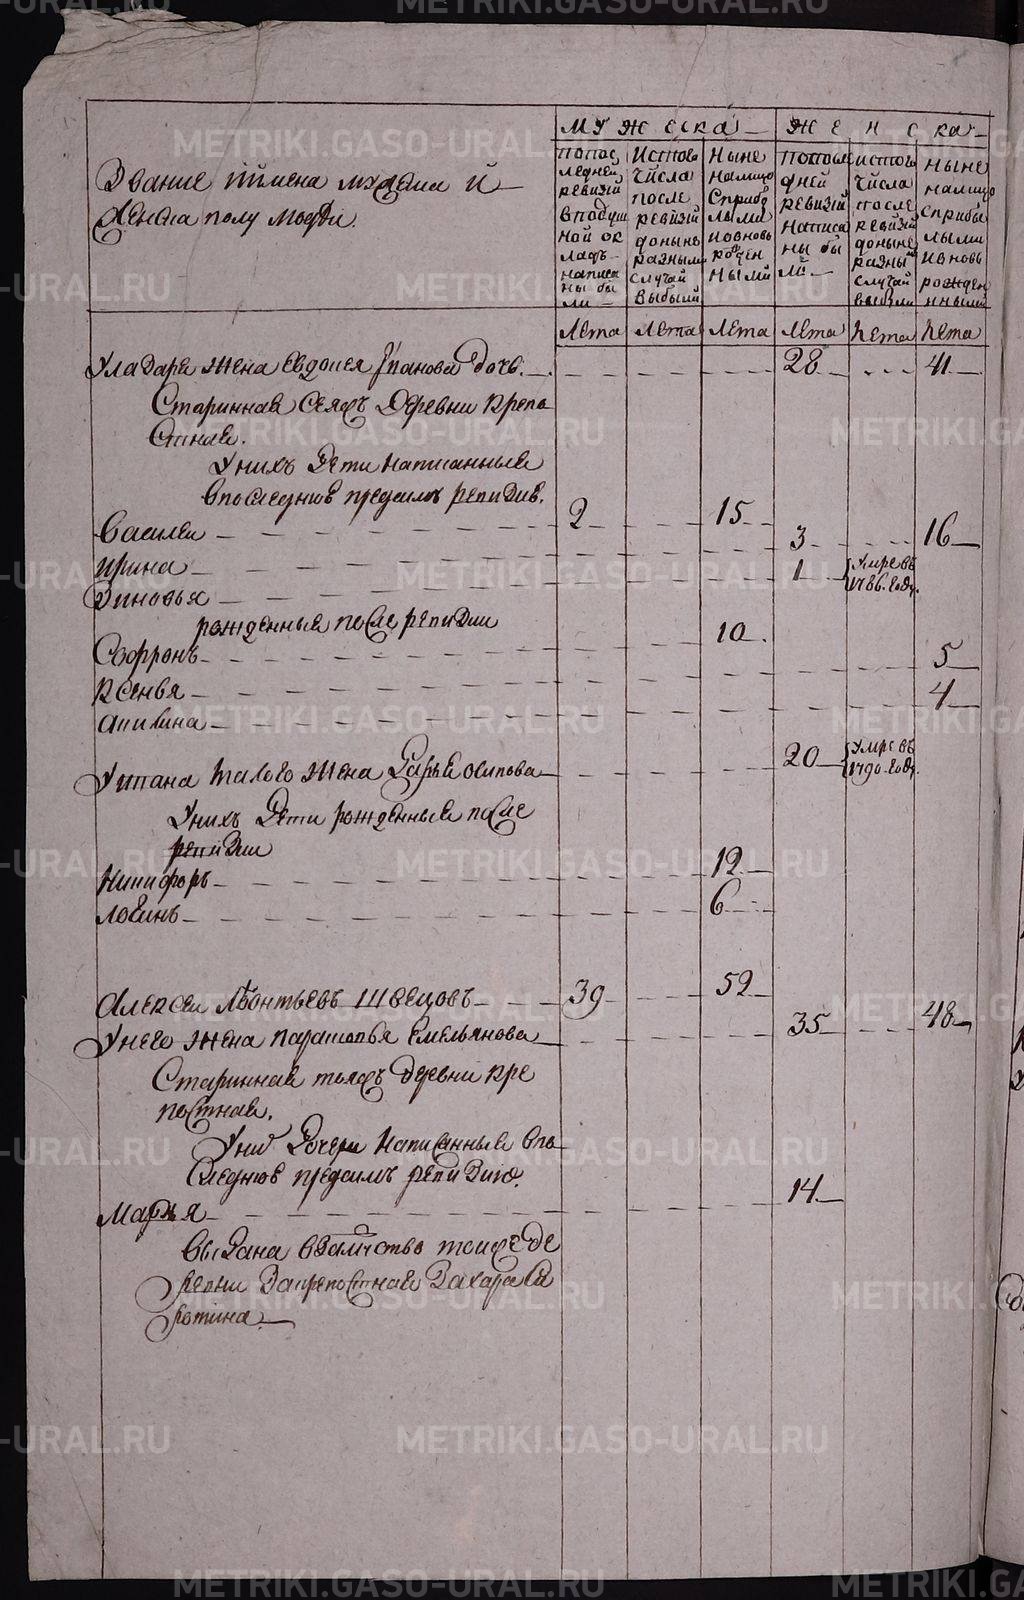 METRIKI.GASO-URAL.RU
Звание иимена мужеска и
женска полу людеи
мужеска
женска
попос
ледней
ревизй
вподуш
ной ок
ладъ
написа
ны бы
ли
Истого
числа
после
ревизй
доныне
разными
случай
выбыли
Ныне
налицо
Сприбы
лыми
ивновь
рожден
ными
Попосле
дней
ревизй
написа
ны бы
ли
истого
числа
после
ревизй
доныне
разны
случай
выбыли
Ныне
налицо
сприбы
лыми
ивновь
рожден
нными
Лета Лета Лета Лета Лета Лета
Улазаря жена Евдокея дочь 28 41
Стариннаа сеяжъ Деревни крепо
стнаа.
Унихъ Дети написанныя
впоследнюю предсимъ ревизию.
Василеи 2 15
Ирина 3 16
Зиновья 1 Умре въ 1786 годе.
рожденныя после ревизии
Софронъ 10
Ксенья 5
Акилина 4
жена Дарья Осипова 20 Умре въ 1790 годе.
Унихъ Дети рожденныя после
ревизии
Никифоръ 12
Логинъ 6
Алексеи Леонтьевъ Швецовъ 39 52
Унего жена Парасковья Емельянова 35 48
Стариннаа тояжъ деревни кре
постнаа.
Уних Дочери написанныя впо
следнюю предсимъ ревизию.
Марья 14
Выдана взамужство тоижде
ревни Закрепостнаго Захара Си
ротина